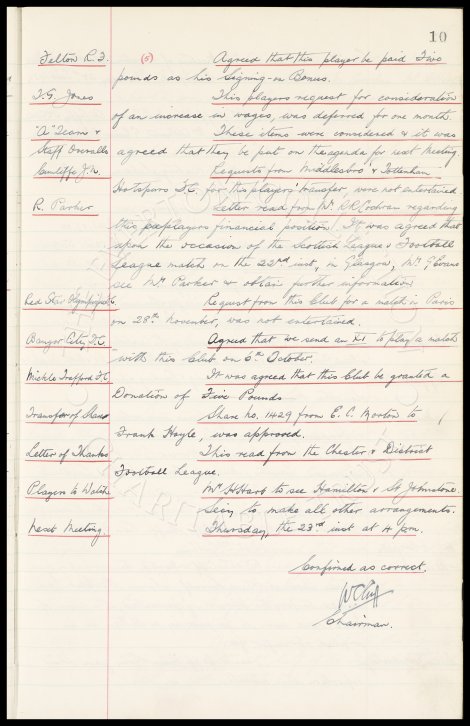 10
Felton R. F. (5) Agreed that this player be paid Five
pounds as his Signing-on Bonus.
T.G. Jones This players request for consideration
of an increase in wages, was deferred for one month.
"A" Team & These items were considered & it was
Staff Overalls agreed that they be put on the agenda for next Meeting.
Cunliffe J.N. Requests from Middlesbro & Tottenham
Hotspurs F.C. for this players' transfer, were not entertained
R. Parker Letter read from Mr. R.R. Cochran regarding
this players financial position. It was agreed that
upon the occasion of the Scottish League v Football
League match on the 22nd inst, in Glasgow, Mr. G. Evans
see Mr Parker & obtain further information
Red Star Olympique Request from this Club for a match in Paris
on 28th November, was not entertained.
Bangor City F.C. Agreed that we send an XI to play a match
with this Club on 6th October.
Mickle Trafford F.C. It was agreed that this Club be granted a
Donation of Five Pounds
Transfer of Share Share No. 1429 from E. C. Morton to
Frank Hoyle, was approved.
Letter of Thanks This read from the Chester & District
Football League.
Players to Watch Mr Hobart to see Hamilton v St Johnstone.
Secy. to make all other arrangements.
Next Meeting Thursday, the 23rd inst at 4 pm.
Confirmed as correct.
W C Cuff
Chairman.